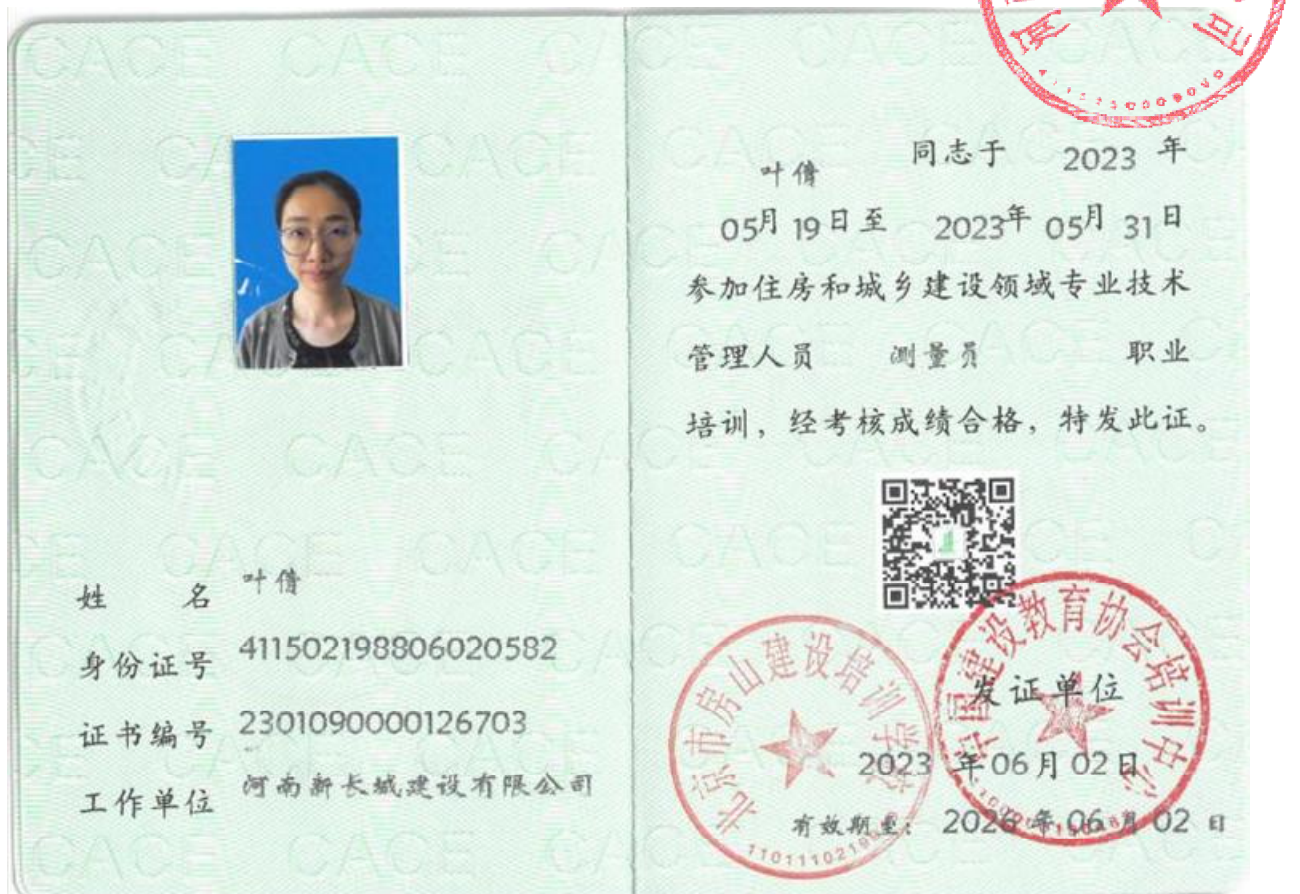 姓 名 叶倩
身份证号 411502198806020582
证书编号 2301090000126703
工作单位 河南新长城建设有限公司
叶倩 同志于 2023 年
05月 19日至 2023年 05月 31日
参加住房和城乡建设领域专业技术
管理人员 测量员 职业
培训，经考核成绩合格，特发此证。
北京市房山建设培训学校
中国建设教育协会培训中心
发证单位
2023 年06月02日
有效期至： 2026 年 06 月 02 日
CACE